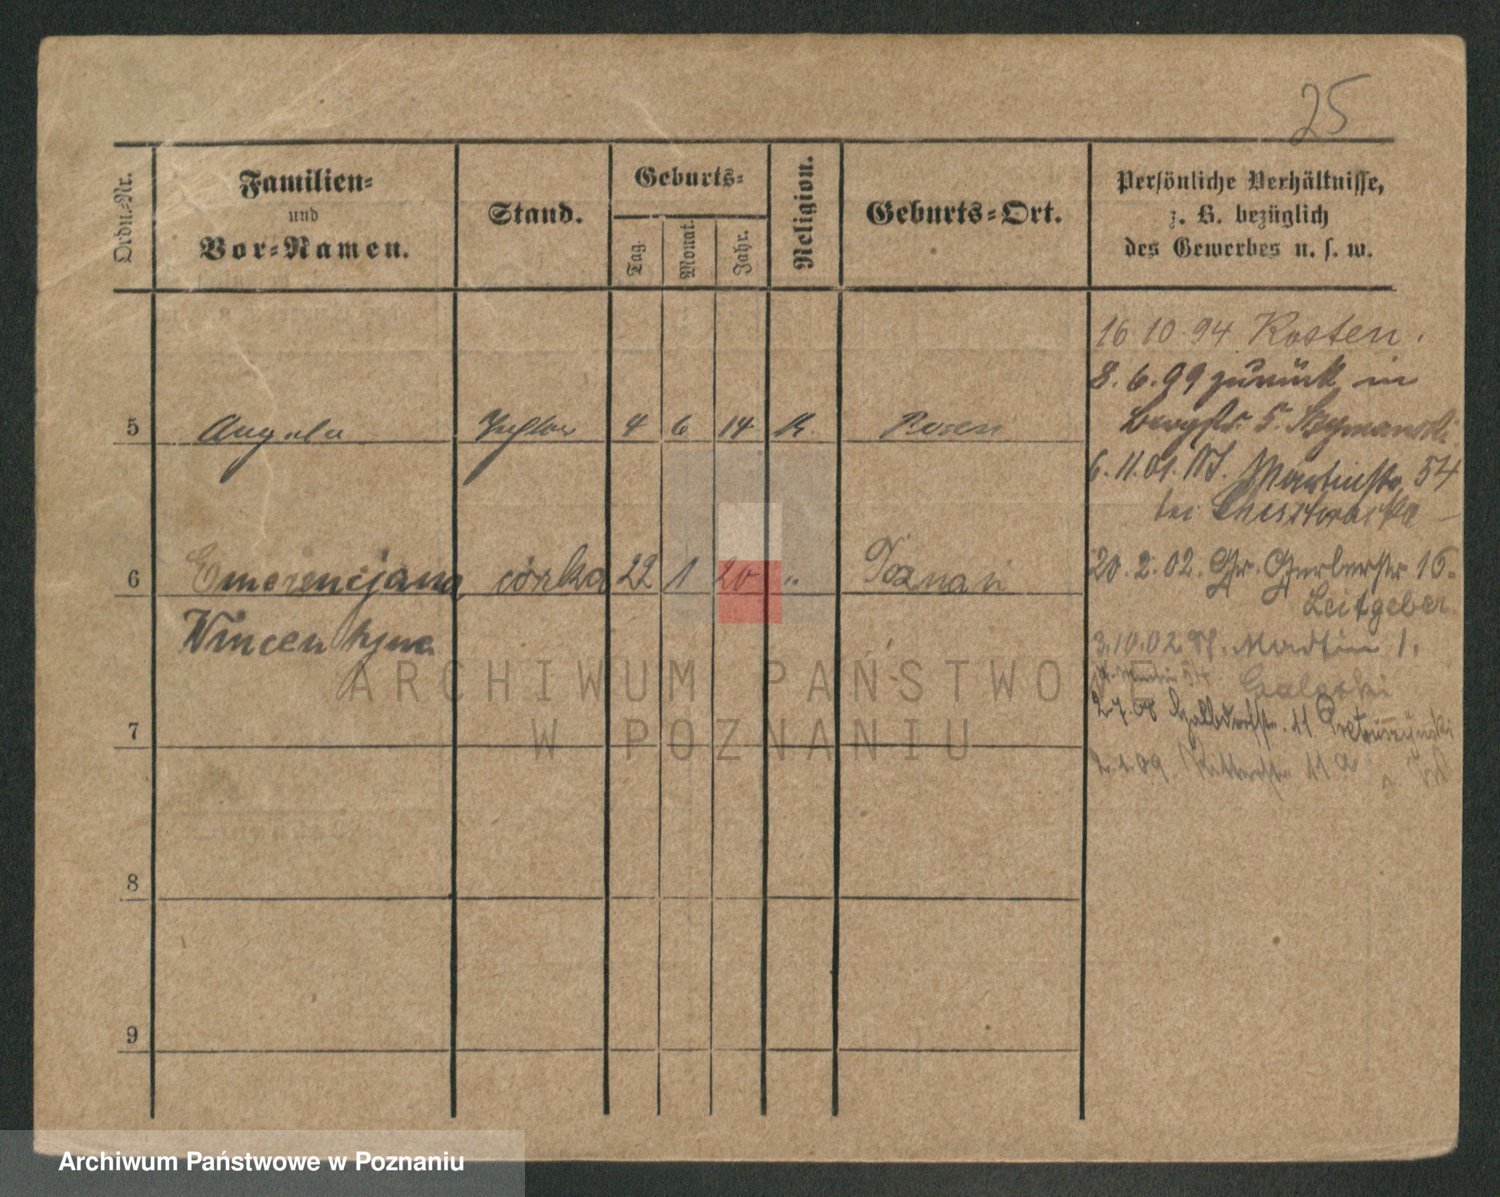 25
Ordn.-Nr.
Familien-
und
Vor-Namen.
Stand.
Geburts-
Tag.
Monat.
Jahr.
Religion.
Geburts-Ort.
Persönliche Verhältnisse,
z. B. bezüglich
des Gewerbes u. s. w.
16 10 94 Kosten.
8. 6. 99 zurück in
Bergstr. 5. Szymanski
5 Angela Tochter 4 6 14 K. Posen
6. 11. 01. St. Martinstr. 54
bei
6 Emerencjana córka 22 1 20 " Poznań
20. 2. 02. Gr. Gerberstr 16.
Leitgeber
Wincentyna
3. 10. 02. St. Martin 1.
2. 7. 08 Halbdorfstr. 11
7
2. 1. 09 Ritterstr. 11a
8
9
ARCHIWUM PAŃSTWOWE
W POZNANIU
Archiwum Państwowe w Poznaniu